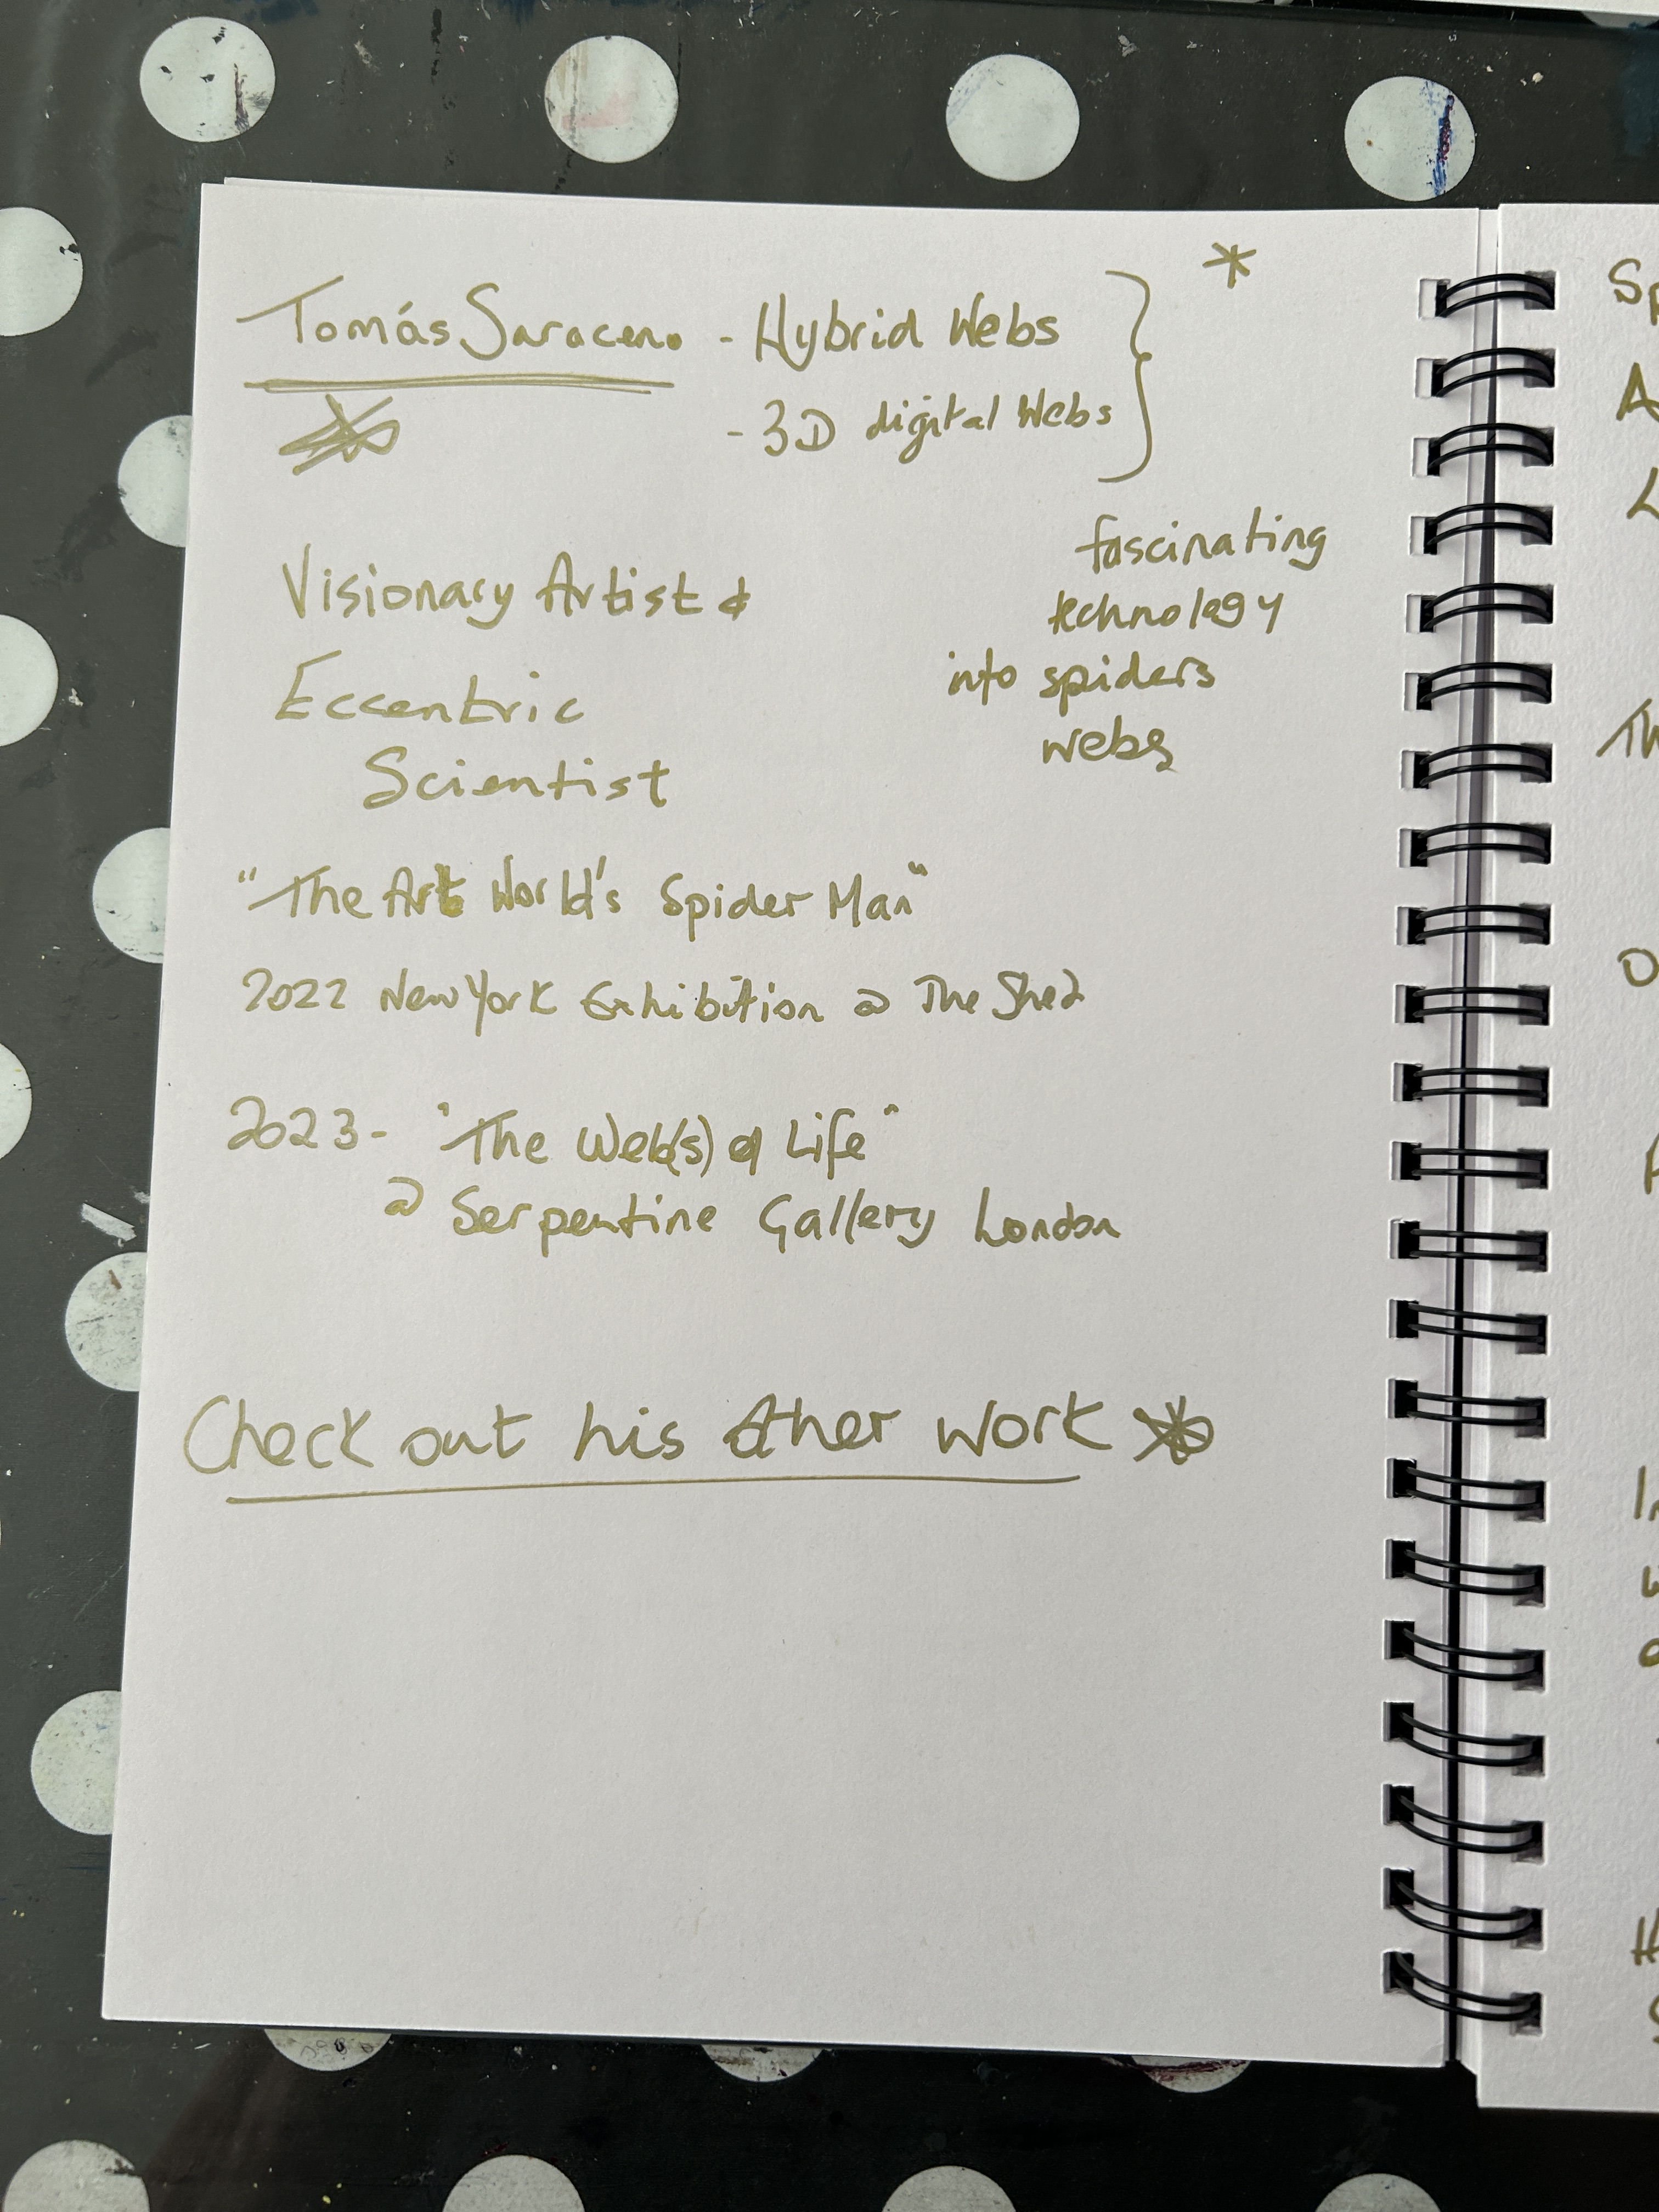 *
Tomás Saraceno - Hybrid Webs
- 3D digital Webs
fascinating
technology
into spiders
webs
Visionary Artist &
Eccentric
Scientist
"The Art World's Spider Man"
2022 New York Exhibition @ The Shed
2023 - "The Web(s) of Life"
@ Serpentine Gallery London
Check out his other work *
Sp
A
L
Th
O
In
w
H
S